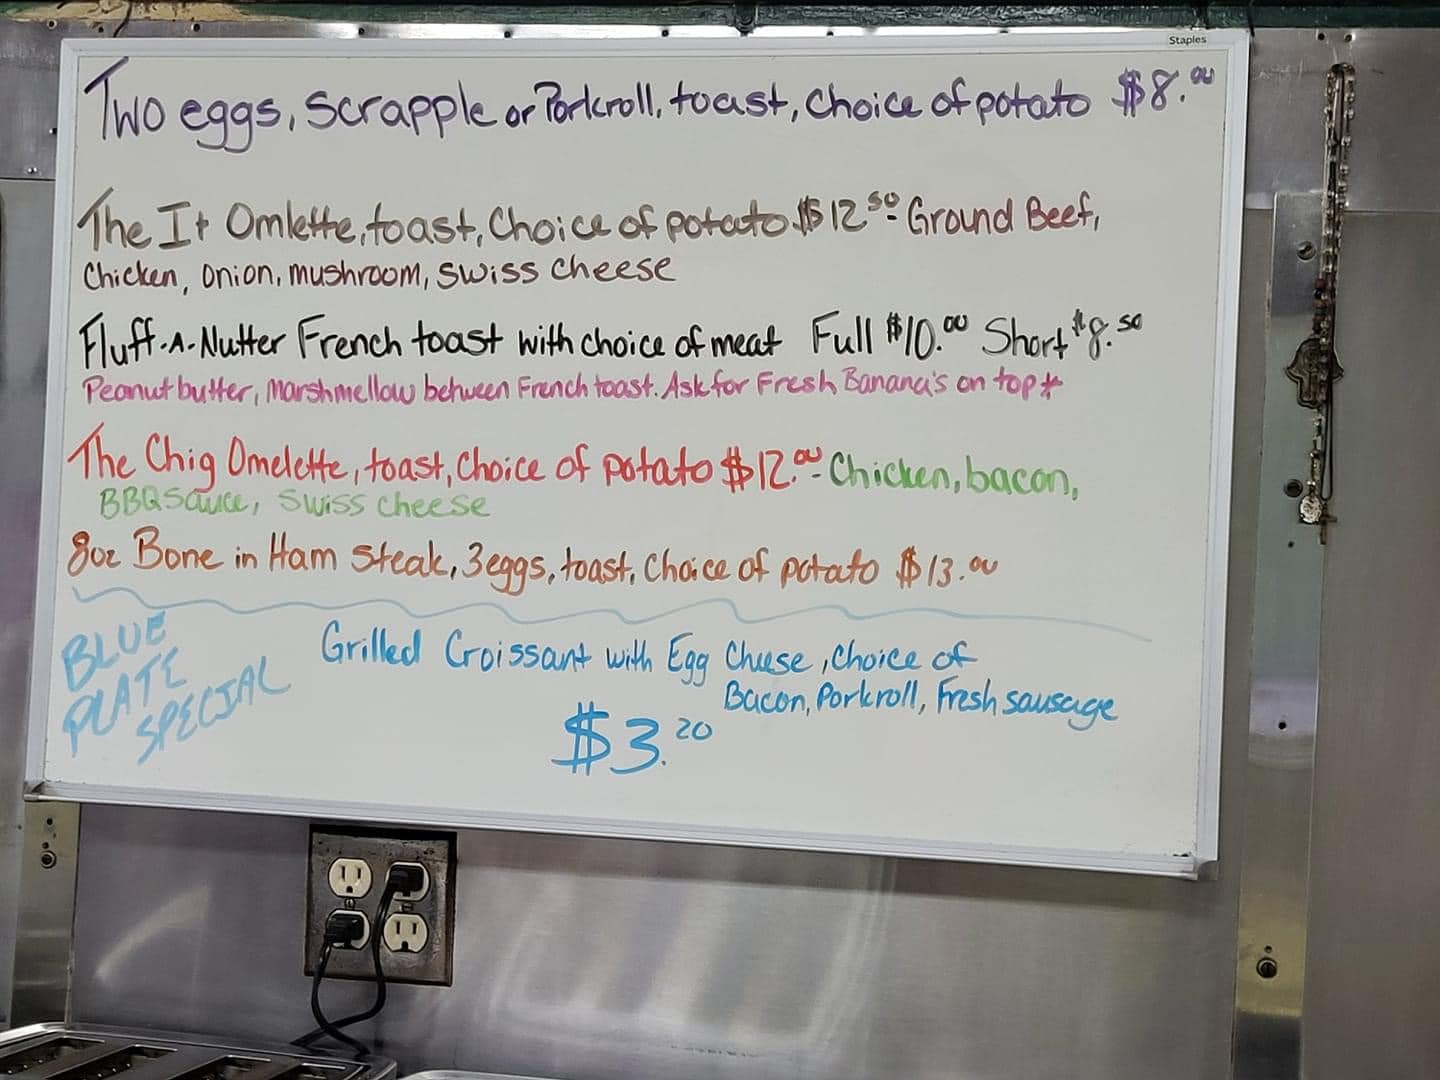 Staples
Two eggs, Scrapple or Porkroll, toast, Choice of potato $8.00
The It Omlette, toast, Choice of potato $12.50 - Ground Beef,
Chicken, Onion, mushroom, Swiss Cheese
Fluff-A-Nutter French toast with choice of meat Full $10.00 Short $8.50
Peanut butter, Marshmellow between French toast. Ask for Fresh Banana's on top*
The Chig Omelette, toast, Choice of potato $12.00 - Chicken, bacon,
BBQ Sauce, Swiss cheese
8oz Bone in Ham Steak, 3 eggs, toast, Choice of potato $13.00
BLUE PLATE SPECIAL
Grilled Croissant with Egg Cheese, Choice of
Bacon, Porkroll, Fresh sausage
$3.20